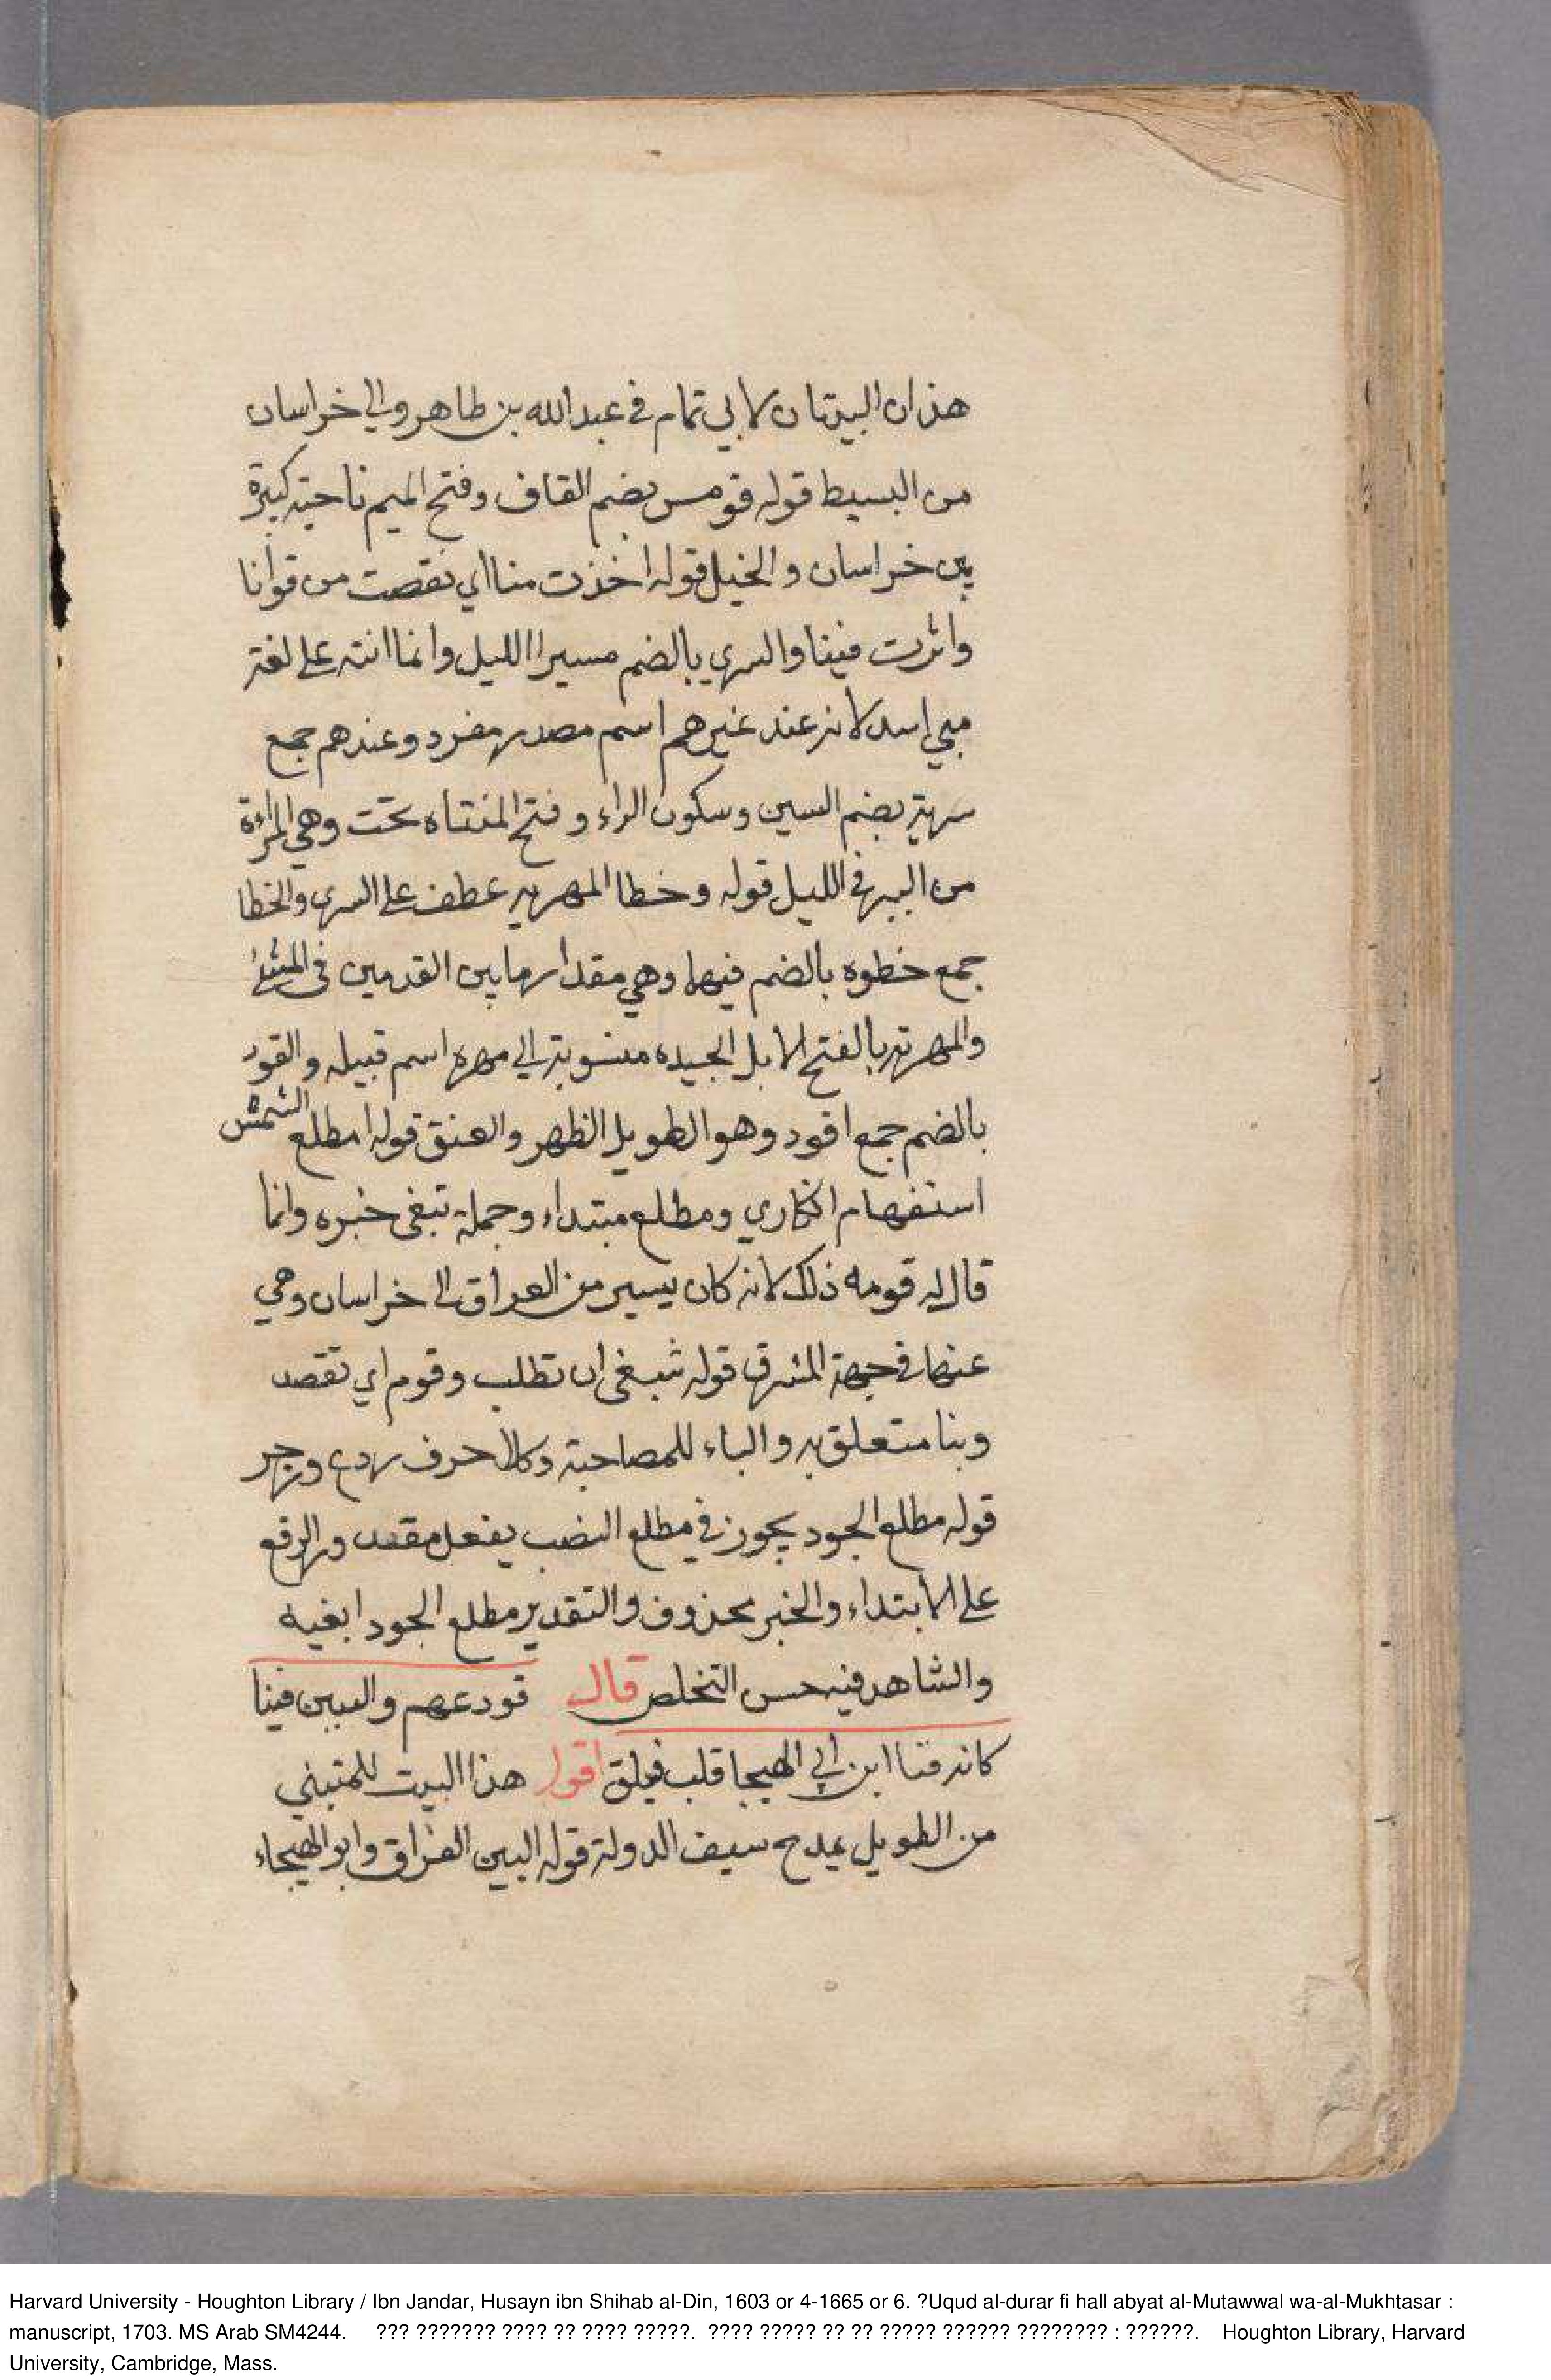 هذان البيتان لابي تمام في عبد الله بن طاهر والي خراسان
من البسيط قوله قومس بضم القاف وفتح الميم ناحية كبيرة
بين خراسان والخيل قوله اخذت منا اي نقصت من قوانا
واثرت فينا والسري بالضم مسير الليل وانما انثه علي لغة
بني اسد لانه عند غيرهم اسم مصدر مفرد وعندهم جمع
سرية بضم السين وسكون الراء وفتح المثناه تحت وهي المرأة
من السير في الليل قوله وخطا المهرية عطف علي السري والخطا
جمع خطوه بالضم فيهما وهي مقدار ما بين القدمين في المشي
والمهرية بالفتح الابل الجيده منسوبة الي مهره اسم قبيله والقود
بالضم جمع اقود وهو الطويل الظهر والعنق قوله امطلع الشمس
استفهام انكاري ومطلع مبتداء وجملة تبغي خبره وانما
قال له قومه ذلك لانه كان يسير من العراق الي خراسان وهي
عنها في جهة المشرق قوله تبغي اي تطلب وقوم اي تقصد
وبنا متعلق به والباء للمصاحبة وكلا حرف ردع وزجر
قوله مطلع الجود يجوز في مطلع النصب بفعل مقدر والرفع
علي الابتداء والخبر محذوف والتقدير مطلع الجود ابغيه
والشاهد فيه حسن التخلص قال نودعهم والبين فينا
كانه قنا ابن ابي الهيجا قلب فيلق اقول هذا البيت للمتنبي
من الطويل يمدح سيف الدولة قوله البين الفراق وابو الهيجاء
Harvard University - Houghton Library / Ibn Jandar, Husayn ibn Shihab al-Din, 1603 or 4-1665 or 6. ?Uqud al-durar fi hall abyat al-Mutawwal wa-al-Mukhtasar :
manuscript, 1703. MS Arab SM4244. ??? ??????? ???? ?? ???? ?????. ???? ????? ?? ?? ????? ?????? ???????? : ??????. Houghton Library, Harvard
University, Cambridge, Mass.